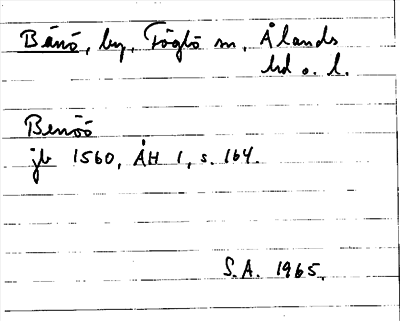 Bänö, by, Föglö sn, Ålands
hd o. l.
Benöö
jb 1560, ÅH 1, s. 164.
S.A. 1965.